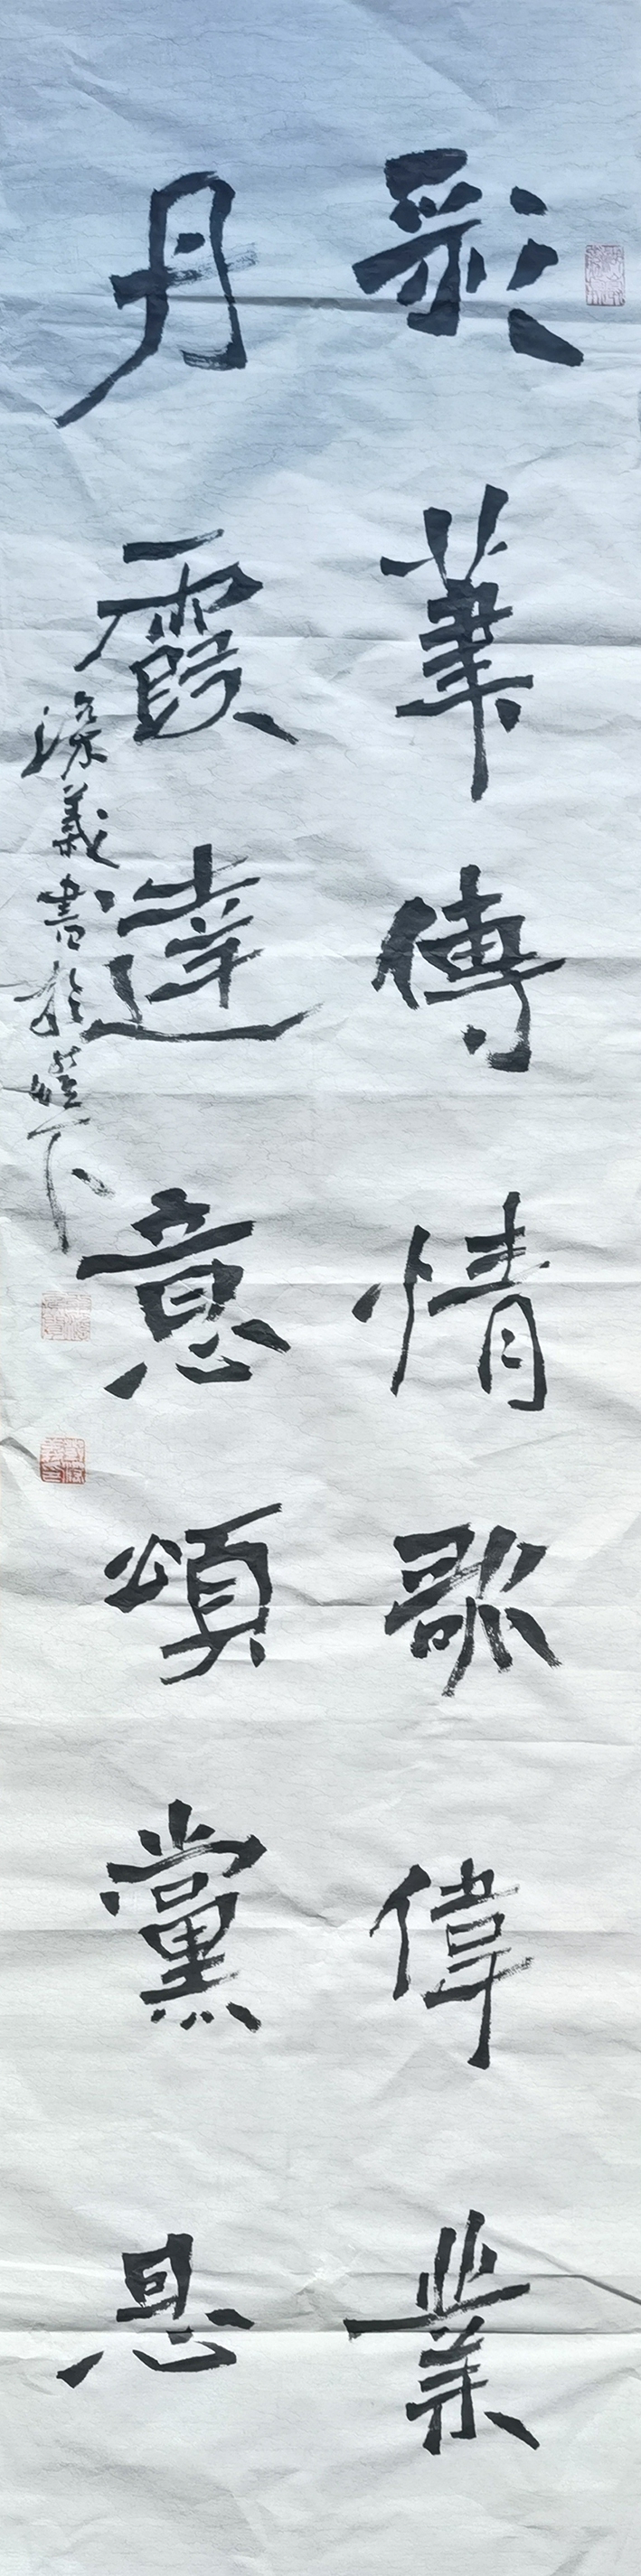 彩筆傳情歌偉業
丹霞達意頌黨恩
深義書於燈下